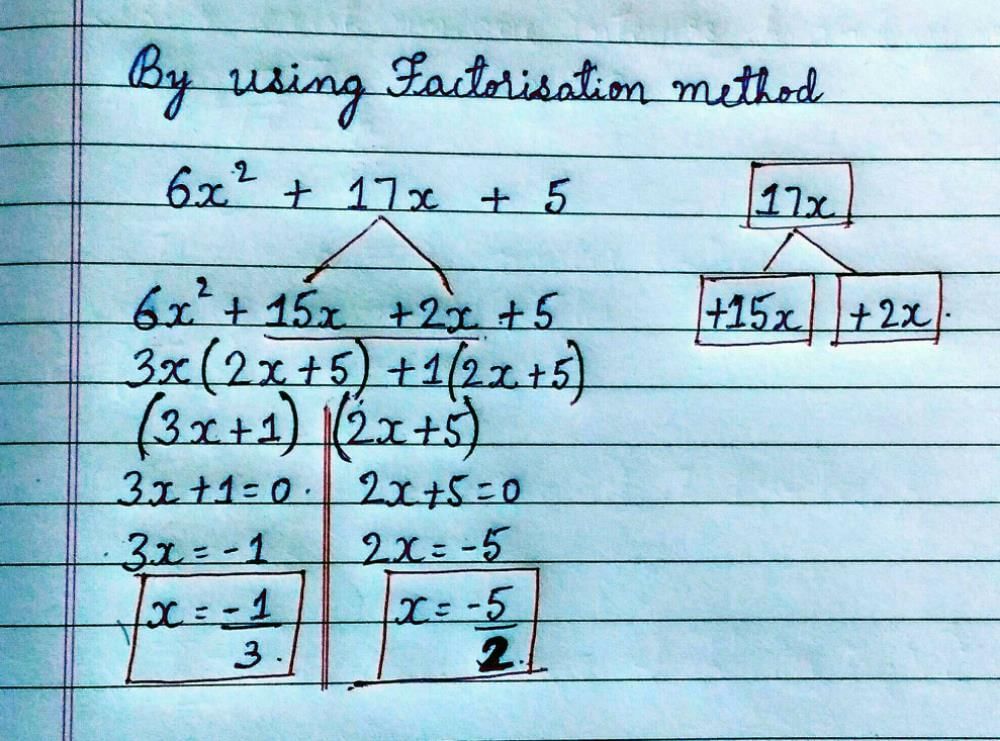 By using Factorisation method
6x² + 17x + 5
17x
6x² + 15x +2x + 5
+15x +2x.
3x(2x+5) +1(2x+5)
(3x+1) (2x+5)
3x+1=0. 2x+5=0
3x = -1 2x = -5
x = -1/3. x = -5/2.